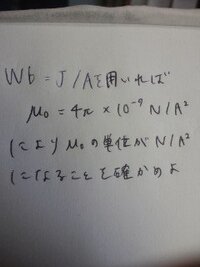 Wb = J/Aを用いれば
μ₀ = 4π × 10⁻⁹ N/A²
によりμ₀の単位がN/A²
になることを確かめよ